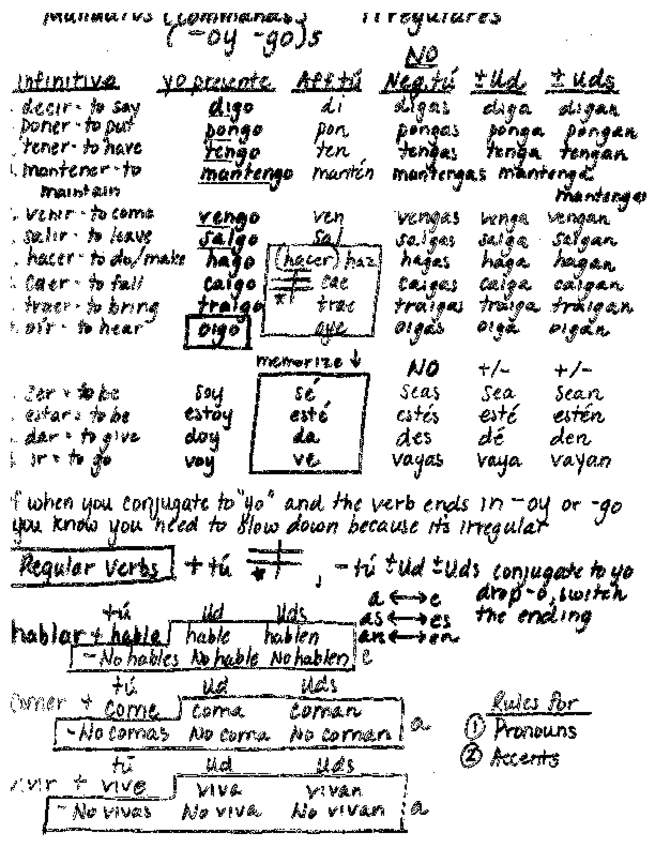 Mandatos (Commands) Irregulares
(-oy -go)s
NO
Infinitive yo presente Aff.tú Neg.tú ±Ud ±Uds
decir - to say digo di digas diga digan
poner - to put pongo pon pongas ponga pongan
tener - to have tengo ten tengas tenga tengan
mantener - to mantengo mantén mantengas mantenga
maintain mantengas
venir - to come vengo ven vengas venga vengan
salir - to leave salgo sal salgas salga salgan
hacer - to do/make hago (hacer) haz hagas haga hagan
caer - to fall caigo cae caigas caiga caigan
traer - to bring traigo trae traigas traiga traigan
oír - to hear oigo oye oigas oiga oigan
memorize ↓ NO +/- +/-
ser = to be soy sé seas sea sean
estar = to be estoy esté estés esté estén
dar = to give doy da des dé den
ir = to go voy ve vayas vaya vayan
if when you conjugate to "yo" and the verb ends in -oy or -go
you know you need to slow down because it's irregular
Regular Verbs + tú *, - tú ±Ud ±Uds conjugate to yo
a ↔ e drop -o, switch
as ↔ es the ending
an ↔ en
tú Ud Uds
hablar + hable hable hablen
- No hables No hable No hablen e
tú Ud Uds
comer + come coma coman
- No comas No coma No coman a
Rules for
① Pronouns
② Accents
tú Ud Uds
vivir + vive viva vivan
- No vivas No viva No vivan a